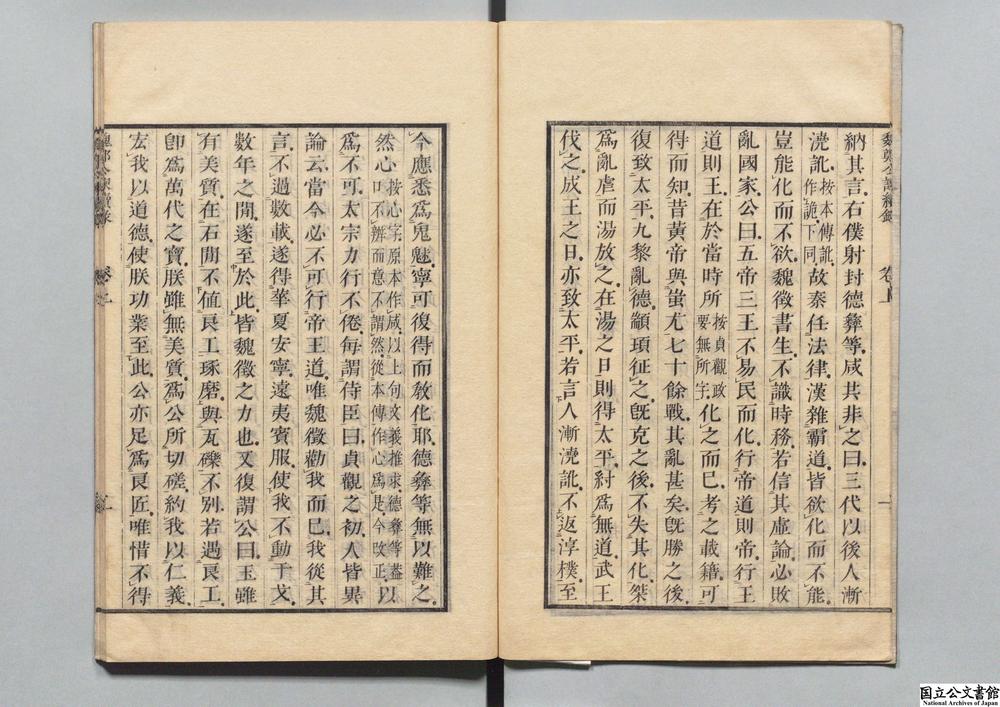 納其言右僕射封德彝等咸其非之曰三代以後人漸
澆訛按本傳訛作詭下同故秦任法律漢雜霸道皆欲化而不能
豈能化而不欲魏徵書生不識時務若信其虛論必敗
亂國家公曰五帝三王不易民而化行帝道則帝行王
道則王在於當時所按貞觀政要無所字化之而已考之載籍可
得而知昔黃帝與蚩尤七十餘戰其亂甚矣旣勝之後
復致太平九黎亂德顓頊征之旣克之後不失其化桀
爲亂虐而湯放之在湯之日則得太平紂爲無道武王
伐之成王之日亦致太平若言人漸澆訛不返淳樸至
今應悉爲鬼魅寧可復得而敎化耶德彝等無以難之
然心按心字原本作咸以上句文義推求德彝等蓋口不辨而意不謂然從本傳作心爲是今改正以
爲不可太宗力行不倦每謂侍臣曰貞觀之初人皆異
論云當今必不可行帝王道唯魏徵勸我而已我從其
言不過數載遂得華夏安寧遠夷賓服使我不動干戈
數年之閒遂至於此皆魏徵之力也又復謂公曰玉雖
有美質在石閒不値良工琢磨與瓦礫不別若遇良工
卽爲萬代之寶朕雖無美質爲公所切磋約我以仁義
宏我以道德使朕功業至此公亦足爲良匠唯惜不得
国立公文書館
National Archives of Japan